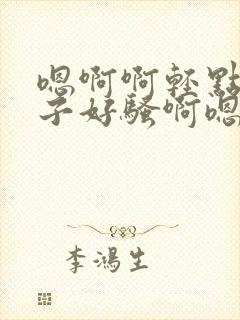 嗯啊啊轻點
子好騷啊嗯
李鴻生